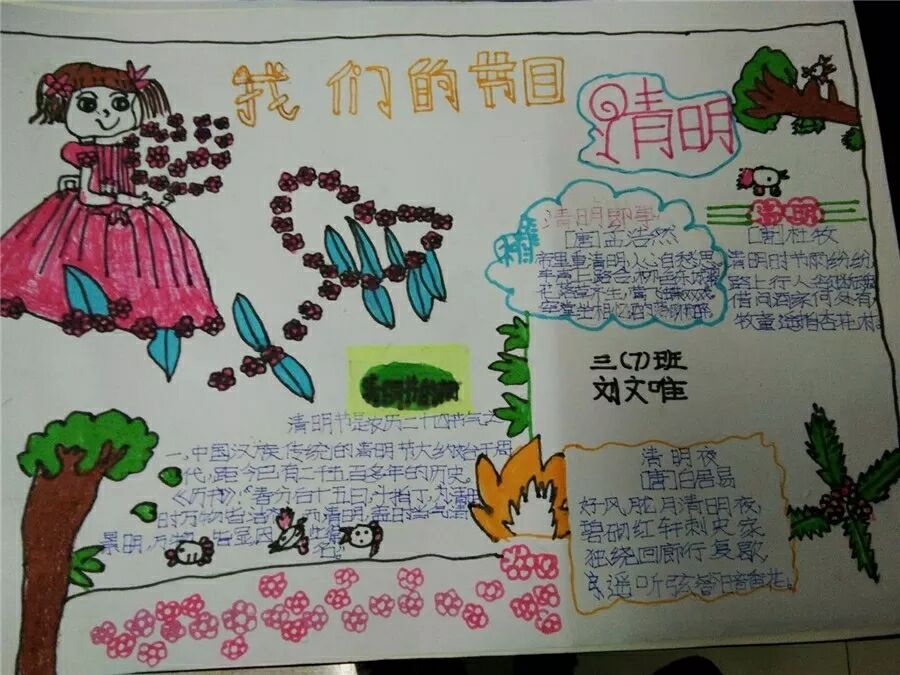 我们的节目
清明
清明即事
[唐]孟浩然
帝里重清明,人心自愁思
车声上路合,柳色东城翠
花落草齐生,莺飞
空堂坐相忆,酒茗聊代醉
[唐]杜牧
清明时节雨纷纷,
路上行人欲断魂
借问酒家何处有,
牧童遥指杏花村。
三(7)班
刘文唯
清明节是农历二十四节气之
一,中国汉族传统的清明节大约始于周
代,距今已有二千五百多年的历史。
《历书》:“春分后十五日,斗指丁,为清明
时万物皆洁齐而清明,盖时当气清
景明,万物皆显,因此得
名。
清明夜
[唐]白居易
好风胧月清明夜,
碧砌红轩刺史家
独绕回廊行复歇
遥听弦管暗看花。